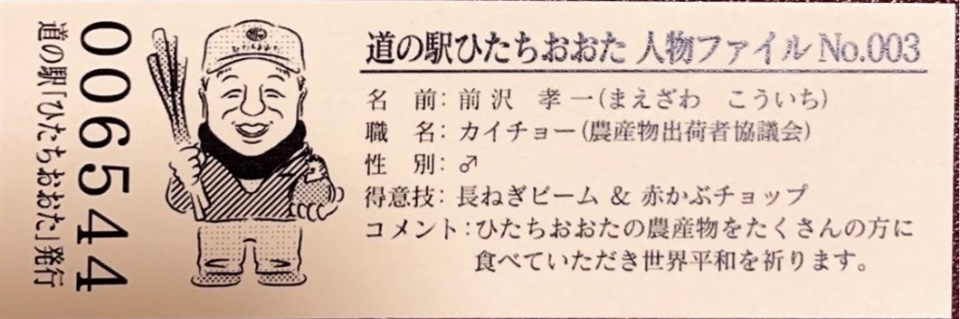 006544
道の駅「ひたちおおた」発行
ひたちおおた
道の駅ひたちおおた 人物ファイル No.003
名　前：前沢 孝一(まえざわ　こういち)
職　名：カイチョー(農産物出荷者協議会)
性　別：♂
得意技：長ねぎビーム & 赤かぶチョップ
コメント：ひたちおおたの農産物をたくさんの方に
食べていただき世界平和を祈ります。